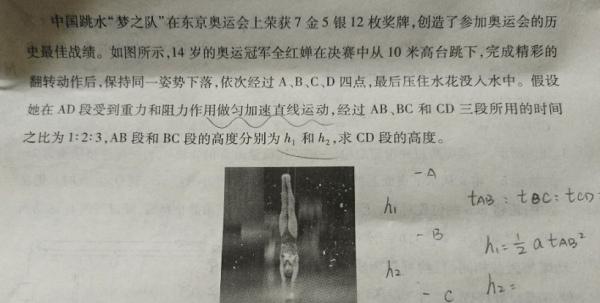 中国跳水“梦之队”在东京奥运会上荣获7金5银12枚奖牌,创造了参加奥运会的历
史最佳战绩。如图所示,14岁的奥运冠军全红婵在决赛中从10米高台跳下,完成精彩的
翻转动作后,保持同一姿势下落,依次经过A、B、C、D四点,最后压住水花没入水中。假设
她在AD段受到重力和阻力作用做匀加速直线运动,经过AB、BC和CD三段所用的时间
之比为1:2:3,AB段和BC段的高度分别为h₁和h₂,求CD段的高度。
- A
h₁
tAB : tBC : tCD
- B
h₁=½atAB²
h₂
h₂=
- C